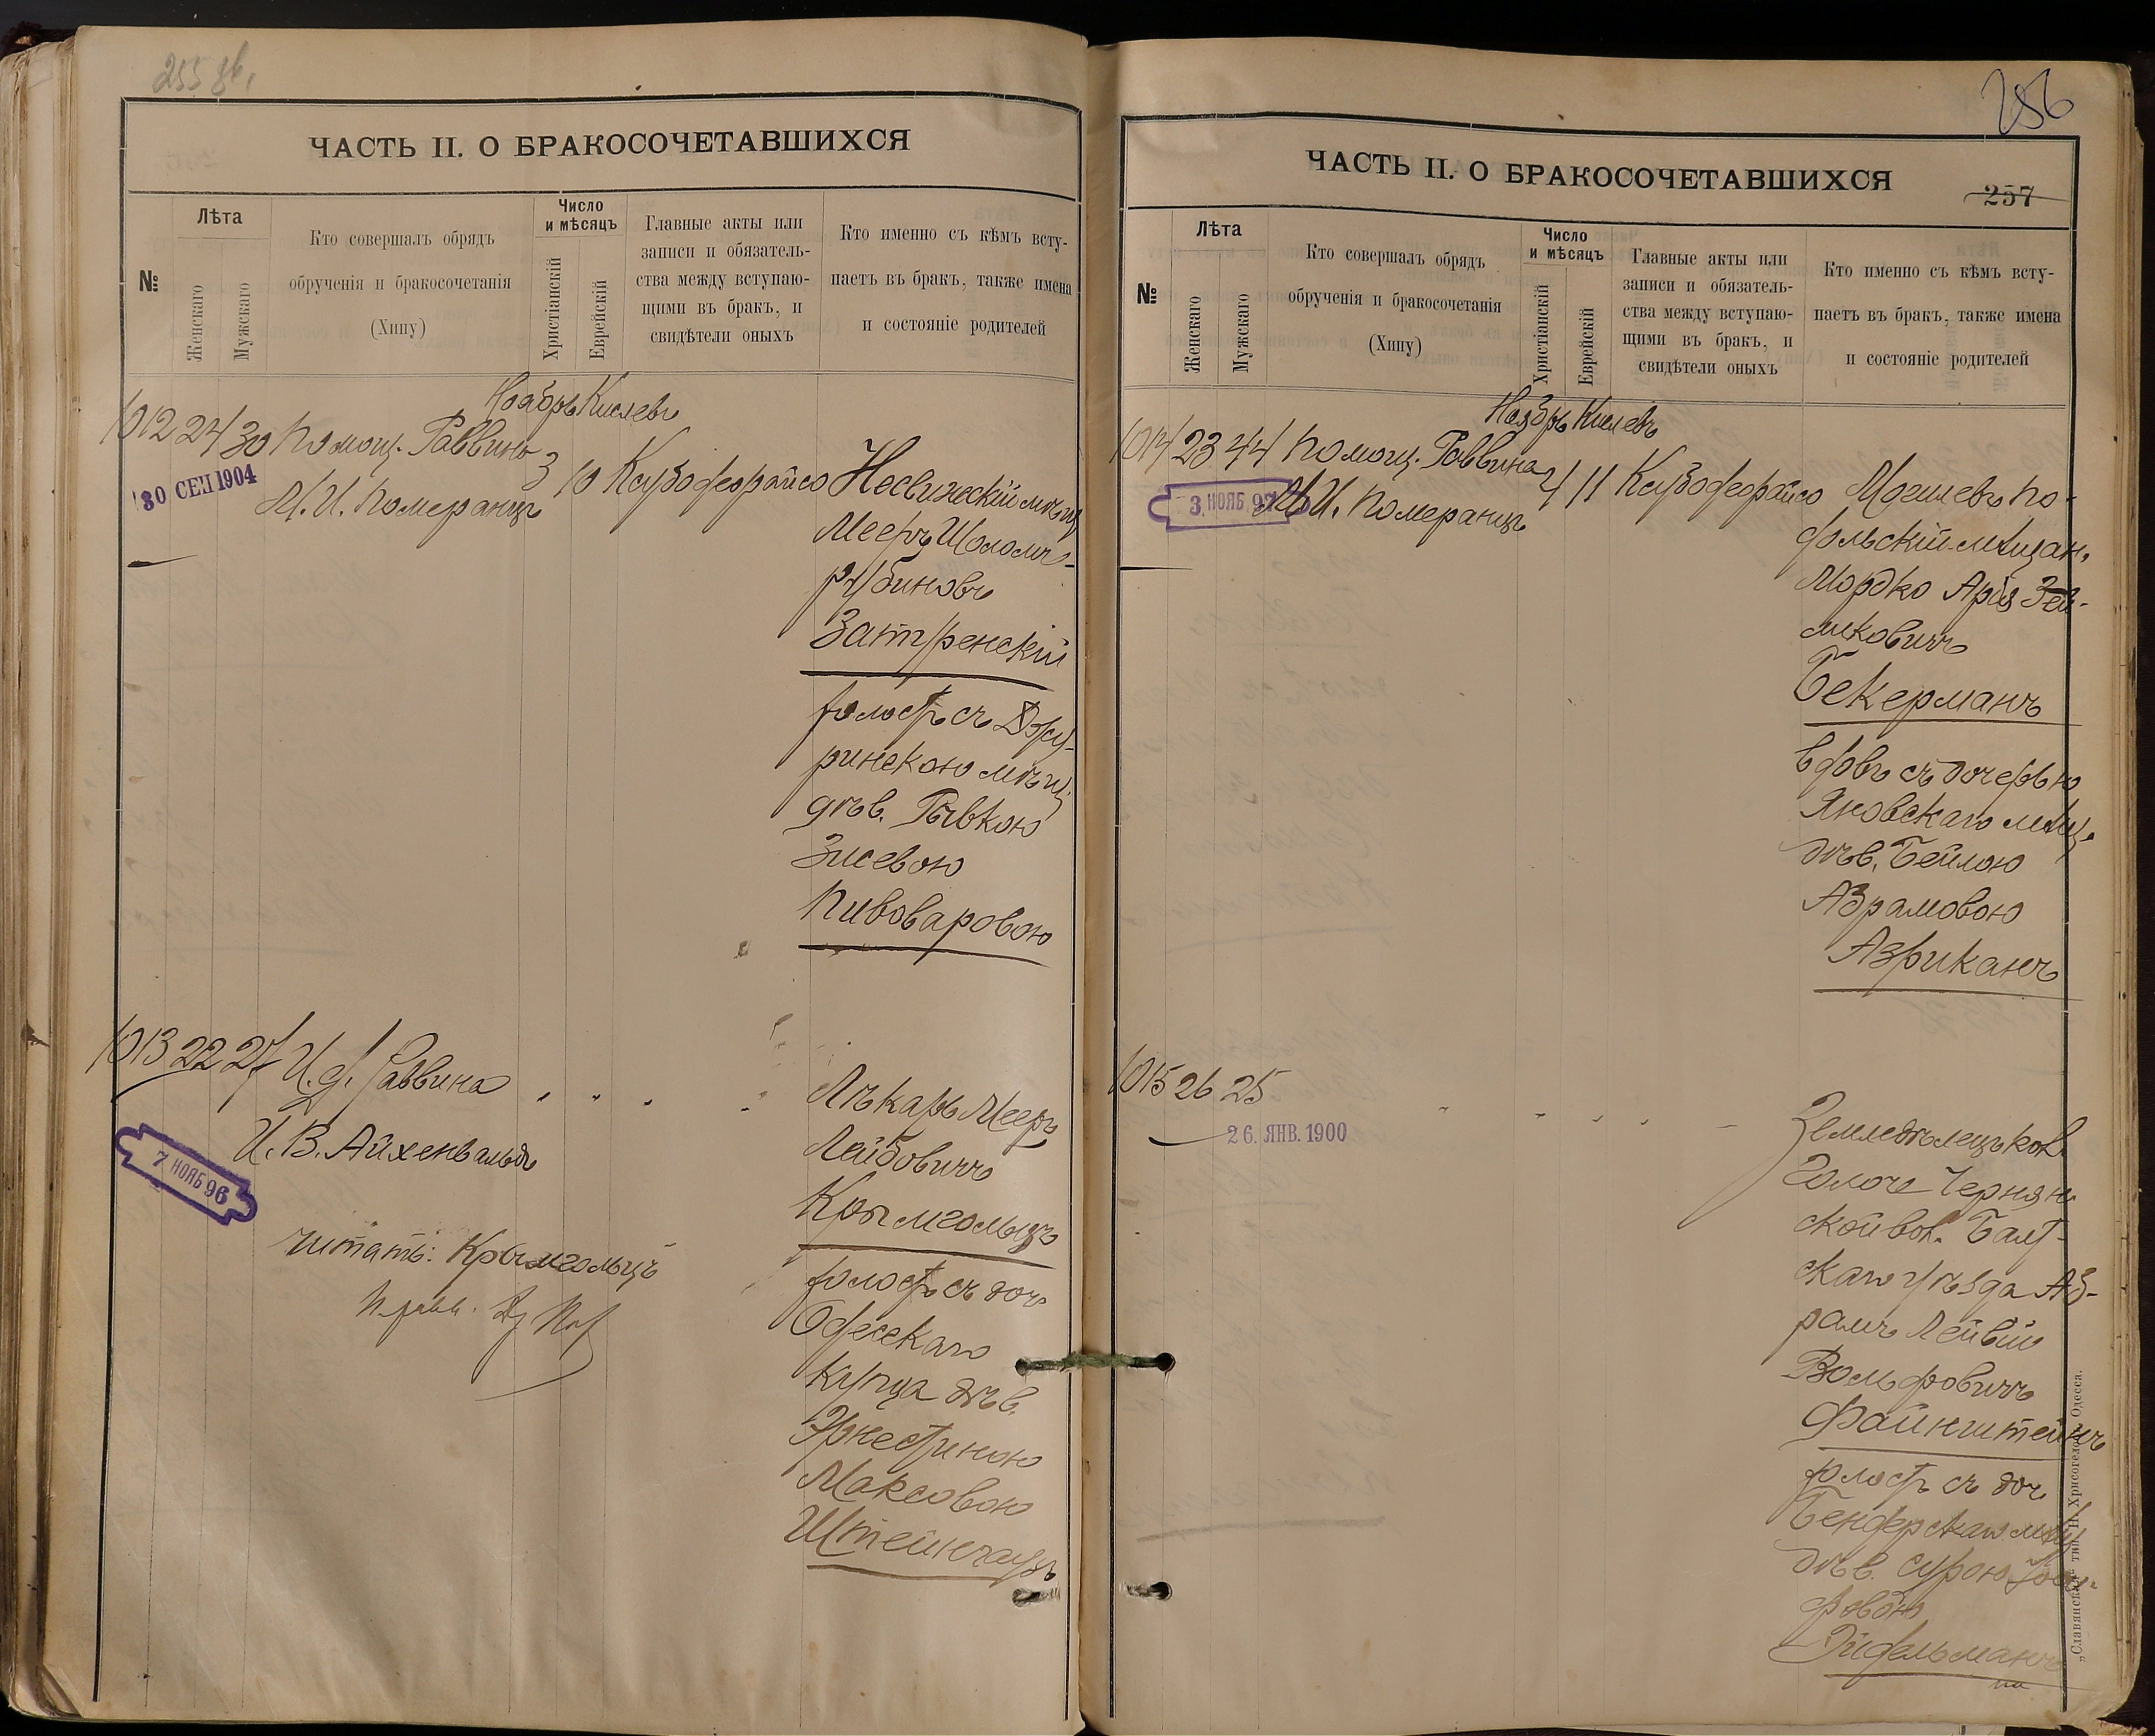 255 об.
ЧАСТЬ II. О БРАКОСОЧЕТАВШИХСЯ
№
Лѣта
Женскаго
Мужскаго
Кто совершалъ обрядъ
обрученія и бракосочетанія
(Хипу)
Число
и мѣсяцъ
Христіанскій
Еврейскій
Главные акты или
записи и обязатель-
ства между вступаю-
щими въ бракъ, и
свидѣтели оныхъ
Кто именно съ кѣмъ всту-
паетъ въ бракъ, также имена
и состояніе родителей
Ноябрь Кислевъ
1012 24 30 Помощ. Раввина 3 10 Ксубо феорайсо
30 СЕН 1904
М. И. Померанцъ
Несвижескій мѣщ.
Мееръ Шоломъ-
рубиновъ
Затуренскій
холостъ съ Джу-
ринскою мѣщ.
дѣв. Рывкою
Зисевою
Пивоваровою
1013 22 27 И. д. Раввина " " " "
И. В. Айхенвальдъ
7 НОЯБ 96
читать: Крымгольцъ
Лѣкарь Мееръ
Лейбовичъ
Крымгольцъ
холостъ съ доч.
Одесскаго
купца дѣв.
Эрнестиною
Максовою
Штейнгаузъ
256
ЧАСТЬ II. О БРАКОСОЧЕТАВШИХСЯ
257
№
Лѣта
Женскаго
Мужскаго
Кто совершалъ обрядъ
обрученія и бракосочетанія
(Хипу)
Число
и мѣсяцъ
Христіанскій
Еврейскій
Главные акты или
записи и обязатель-
ства между вступаю-
щими въ бракъ, и
свидѣтели оныхъ
Кто именно съ кѣмъ всту-
паетъ въ бракъ, также имена
и состояніе родителей
Ноябрь Кислевъ
1014 23 44 Помощ. Раввина 4 11 Ксубо феорайсо
3 НОЯБ 97
М. И. Померанцъ
Могилевъ По-
дольскій мѣщан.
Мордко Арія Зей-
ликовичъ
Бекерманъ
вдовъ съ дочерью
Яновскаго мѣщ.
дѣв. Бейлою
Абрамовою
Азриканъ
1015 26 25 " " " "
26. ЯНВ. 1900
Земледѣлецъ кол.
Голоче Чернян-
ской вол. Балт-
скаго уѣзда Аб-
рамъ Лейвій
Вольфовичъ
Файнштейнъ
холостъ съ доч.
Бендерскаго мѣщ.
дѣв. Сурою Іосі-
фовою
Эйдельманъ
„Славянская" тип. Н. Хрисогелосъ, Одесса.